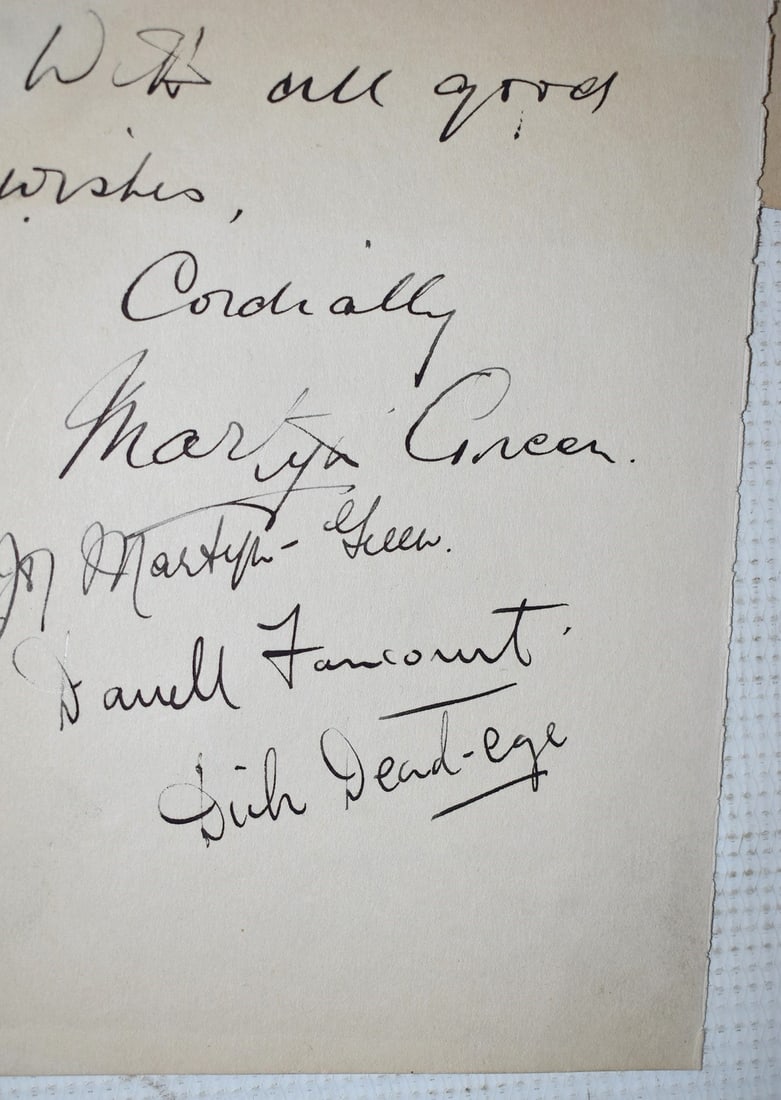 With all good
wishes,
Cordially
Martyn Green.
Martyn-Green.
Darrell Fancourt.
Dick Dead-eye